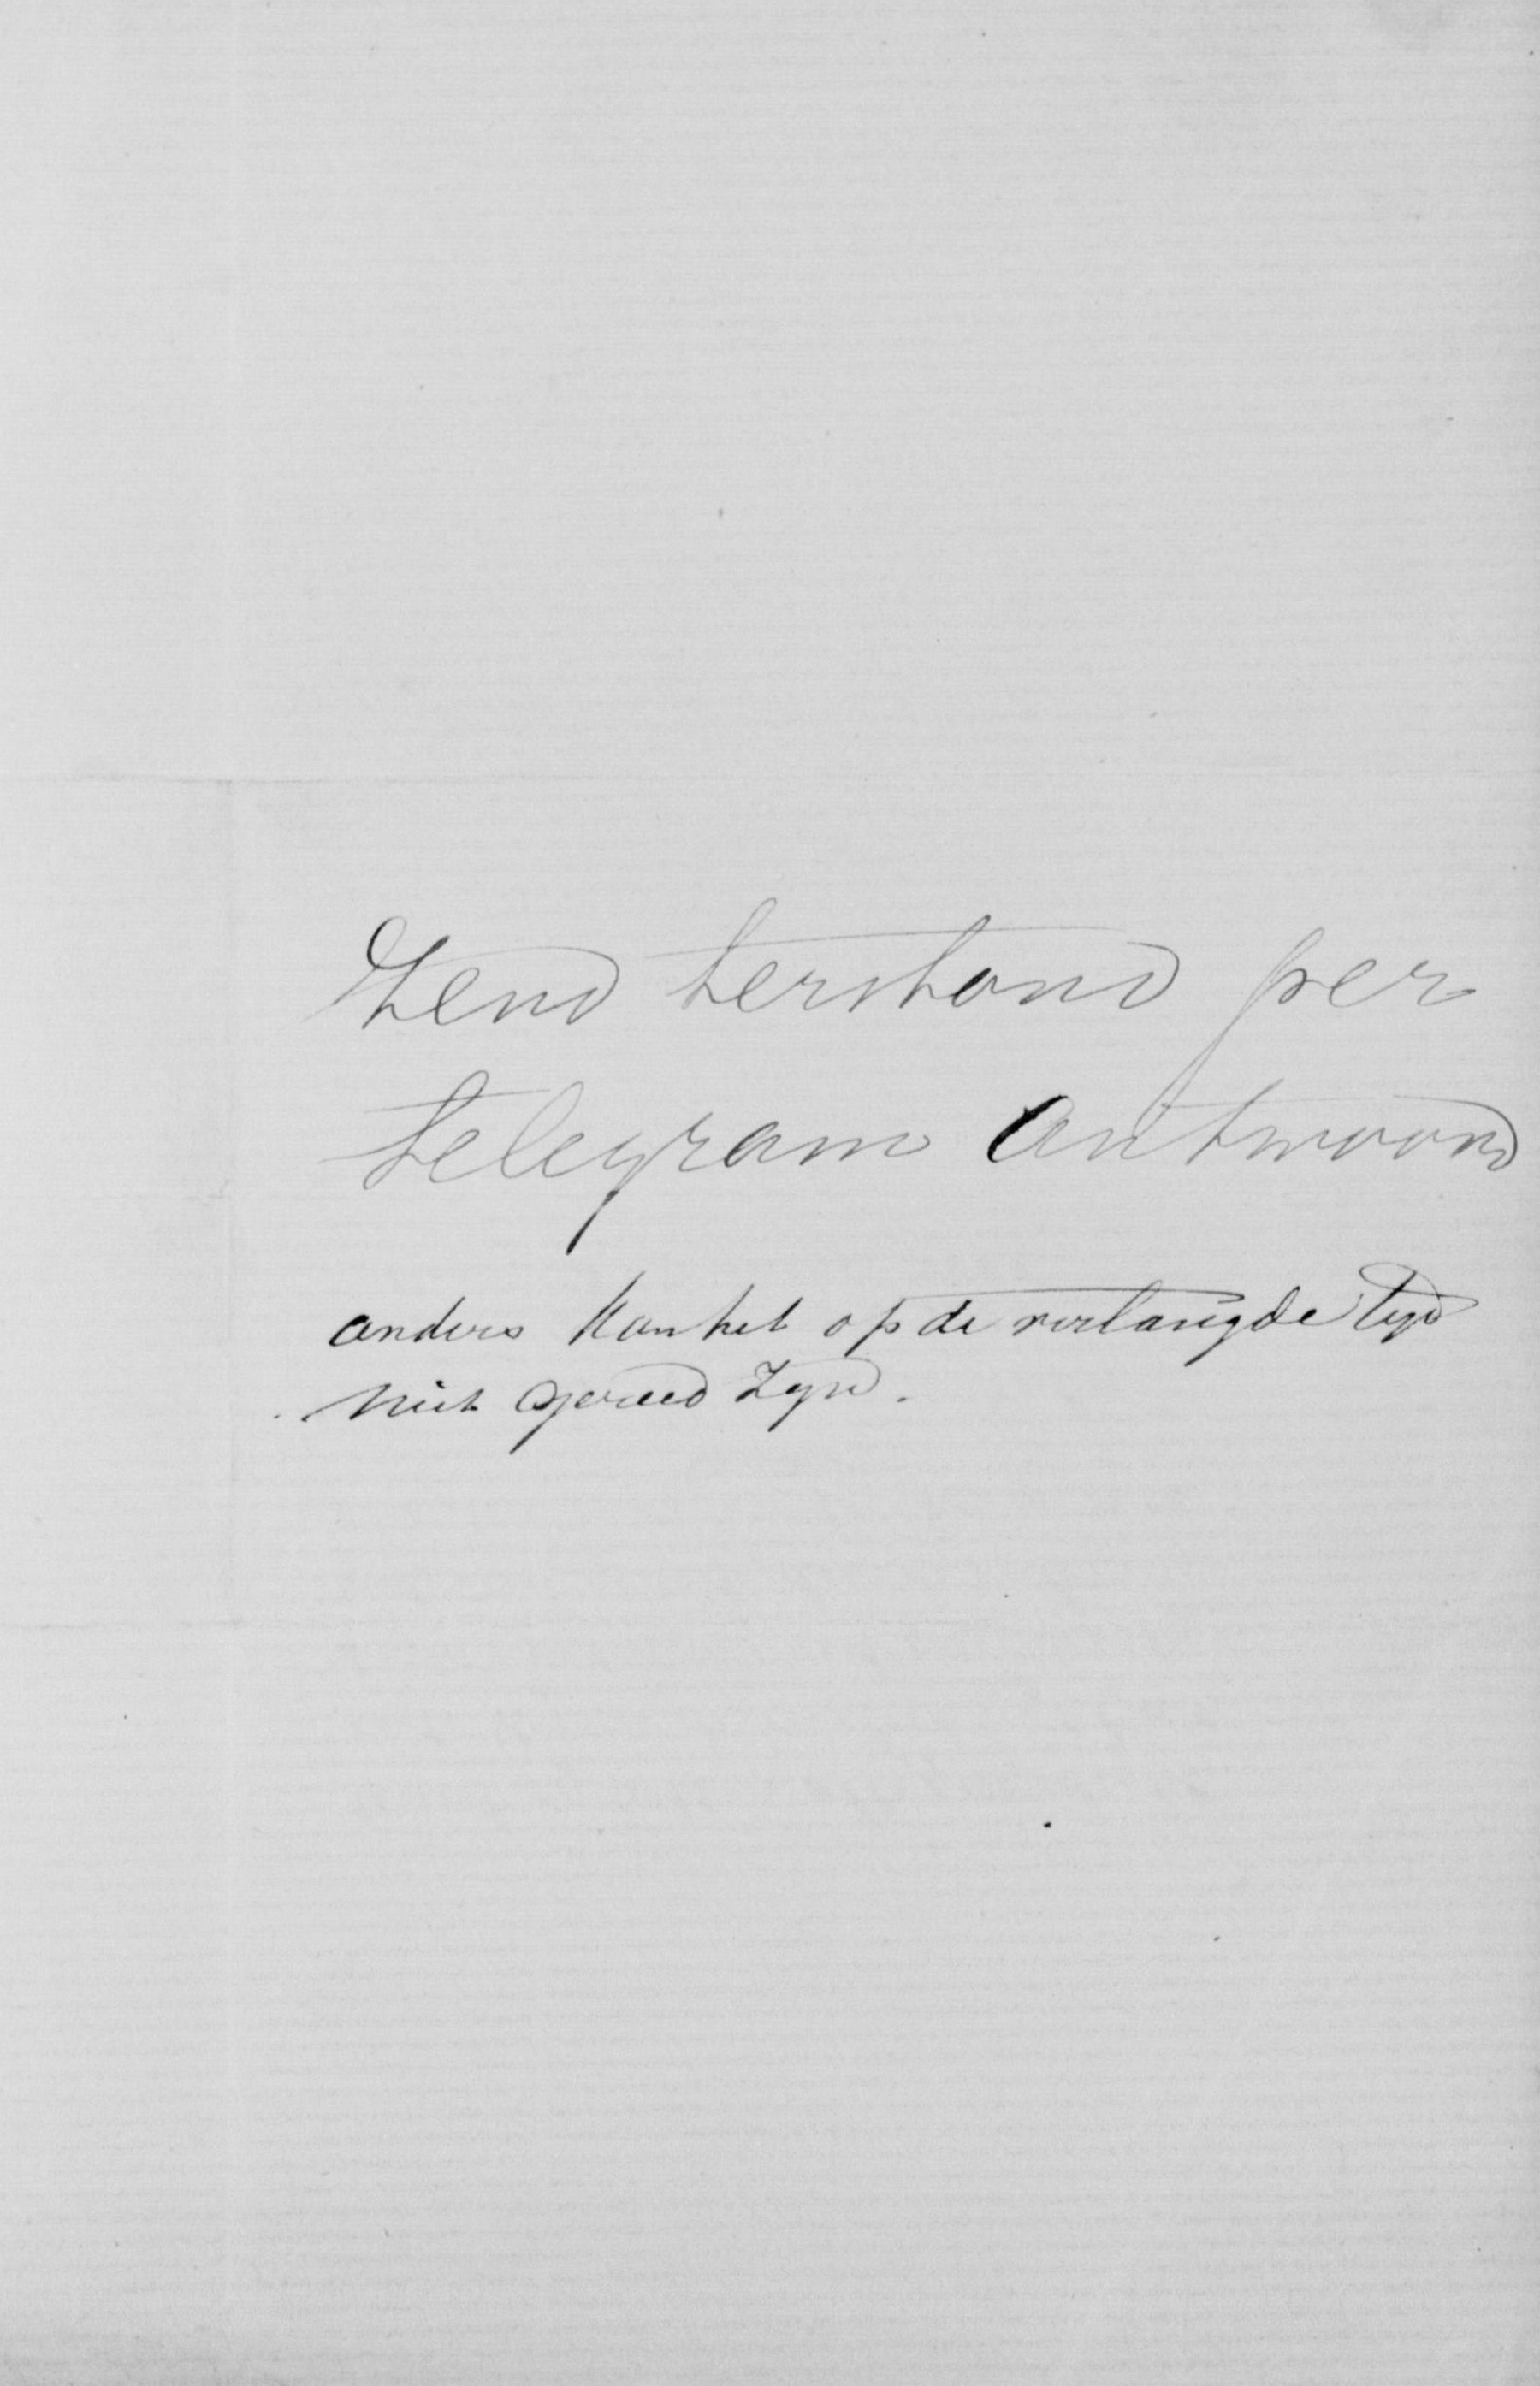 Zend terstond per
telegram antwoord
anders kan het op de verlangde tyd
niet gereed zyn.